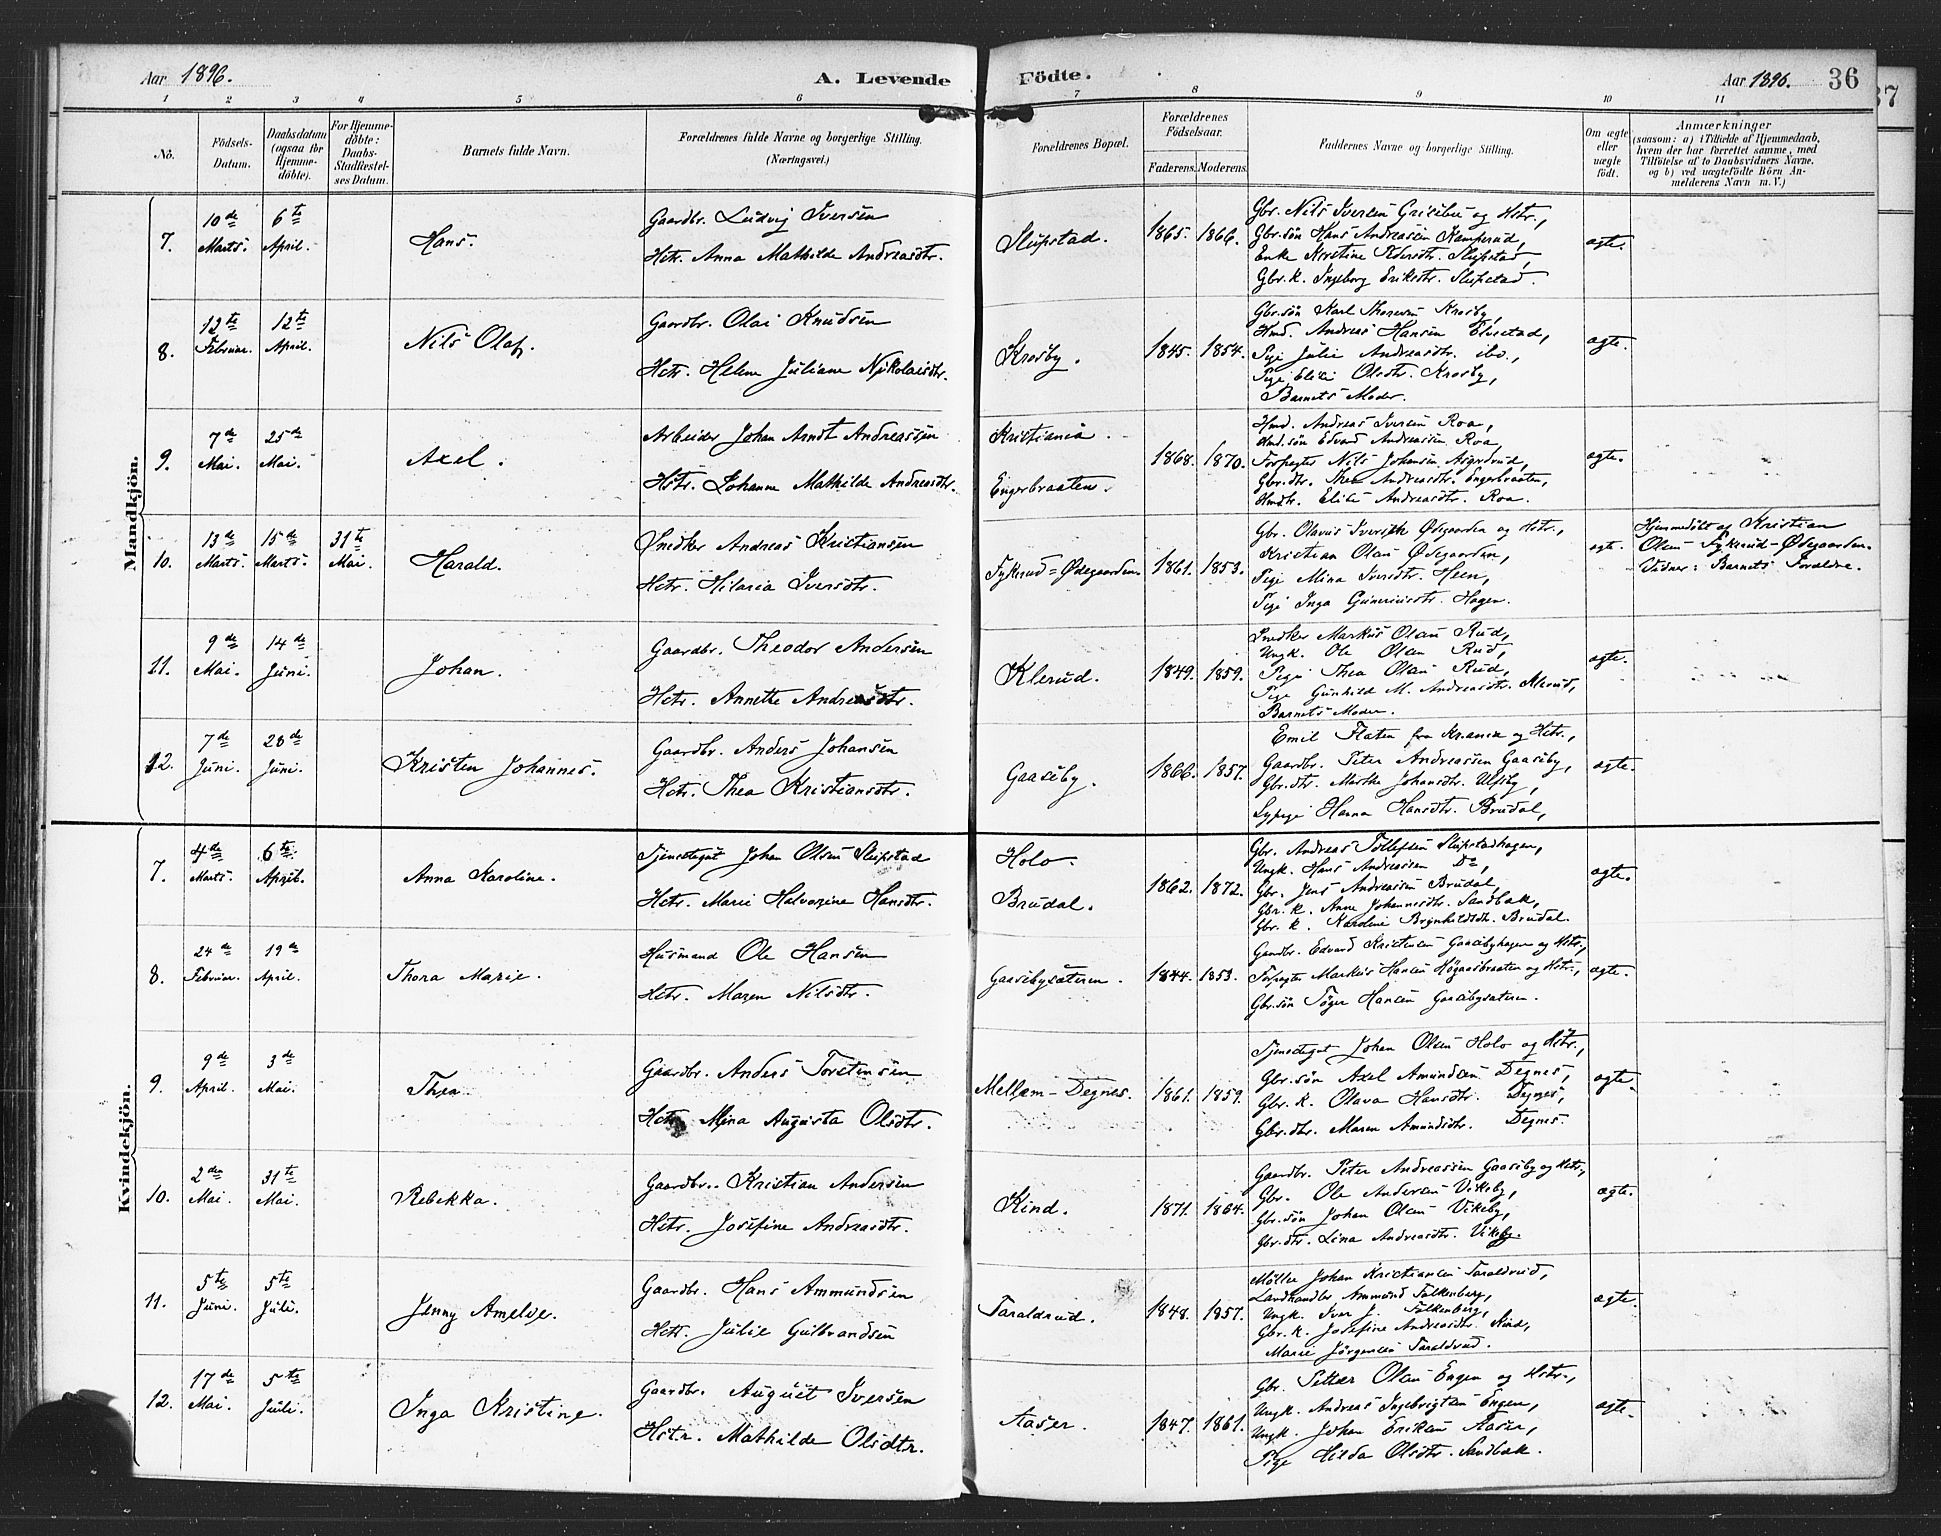 Aar 1896. A. Levende Födte. Aar 1896. 36
37
1 2 3 4 5 6 7 8 9 10 11
No.
Födsels-
Datum.
Daabsdatum
(ogsaa for
Hjemme-
döbte).
For Hjemme-
döbte:
Daabs-
Stadfæstel-
ses Datum.
Barnets fulde Navn.
Forældrenes fulde Navne og borgerlige Stilling.
(Næringsvei.)
Forældrenes Bopæl.
Forældrenes
Födselsaar.
Faderens. Moderens.
Faddernes Navne og borgerlige Stilling.
Om ægte
eller
uægte
födt.
Anmærkninger
(saasom: a) i Tilfælde af Hjemmedaab,
hvem der har forrettet samme, med
Tilföielse af to Daabsvidners Navne,
og b) ved uægtefödte Börn An-
melderens Navn m. V.)
Mandkjön.
7.
10de
Marts.
6te
April.
Hans.
Gaardbr. Ludvig Iversen
Hstr. Anna Mathilde Andreasdtr.
Slupstad.
1865. 1866.
Gbr. Nils Iversen og Hstr.,
Gbr.søn Hans Andreasen Kamperud,
Enke Kristine Pedersdtr. Slupstad,
Gbr.k. Ingeborg Eriksdtr. Slupstad.
ægte.
8.
12te
Februar.
12te
April.
Nils Olaf.
Gaardbr. Olai Knudsen
Hstr. Helene Juliane Nikolaisdtr.
Krosby.
1845. 1854.
Gbr.søn Karl Krosby,
Hmd. Andreas Hansen Elvestad,
Pige Julie Andreasdtr. ibd.,
Pige Elise Olsdtr. Krosby,
Barnets Moder.
ægte.
9.
7de
Mai.
25de
Mai.
Axel.
Arbeider Johan Arndt Andreassen
Hstr. Johanne Mathilde Andreasdtr.
Kristiania.
Engerbraaten.
1868. 1870.
Hmd. Andreas Iversen Roa,
Hmd.søn Edvard Andreassen Roa,
Forpagter Nils Johansen
Gbr.dtr. Thea Andreasdtr. Engerbraaten,
Hmdtr. Elise Andreasdtr. Roa.
ægte.
10.
13de
Marts.
15de
Marts.
31te
Mai.
Harald.
Snedker Andreas Kristiansen
Hstr. Hilaria Iversdtr.
Fykerud=Ødegaarden.
1861. 1853.
Gbr. Olavus Ødegaarden og Hstr.,
Kristian Olsen Ødegaarden,
Pige Mina Iversdtr. Heen,
Pige Inga Guneriusdtr. Hagen.
ægte.
Hjemmedöbt af Kristian
Olsen Fykerud=Ødegaarden.
Vidner: Barnets Forældre.
11.
9de
Mai.
14de
Juni.
Johan.
Gaardbr. Theodor Andersen
Hstr. Annette Andreasdtr.
Klerud.
1849. 1859.
Snedker Markus Olsen Rud,
Ungk. Ole Olsen Rud,
Pige Thea Olsen Rud,
Pige Gunhild M. Andreasdtr. Klerud,
Barnets Moder.
ægte.
12.
7de
Juni.
28de
Juni.
Kristen Johannes.
Gaardbr. Anders Johansen
Hstr. Thea Kristiansdtr.
Gaasiby.
1866. 1857.
Emil Flaten fra Krania og Hstr.,
Gaardbr. Peter Andreassen Gaasiby,
Gbr.dtr. Marthe Johansdtr. Ulfsby,
Sypige Hanna Hansdtr. Brudal,
ægte.
Kvindekjön.
7.
4de
Marts.
6te
April.
Anna Karoline.
Tjenestegut Johan Olsen Slupstad
Hstr. Marie Halvorine Hansdtr.
Holo.
Brudal.
1862. 1872.
Gbr. Andreas Tollefsen Slupstadhagen,
Ungk. Hans Andreassen Do,
Gbr. Jens Andreassen Brudal,
Gbr.k. Anne Johannesdtr. Sandbæk,
Gbr.k. Karoline Brynhildsdtr. Brudal.
ægte.
8.
24de
Februar.
19de
April.
Thora Marie.
Husmand Ole Hansen
Hstr. Maren Nilsdtr.
Gaasibysæteren.
1844. 1853.
Gaardbr. Edvard Kristensen Gaasibyhagen og Hstr.,
Forpagter Markus Hansen Högaasbraaten og Hstr.,
Gbr.søn Töger Hansen Gaasibysæteren.
ægte.
9.
9de
April.
3de
Mai.
Thea
Gaardbr. Anders Torstensen
Hstr. Mina Augusta Olsdtr.
Mellem-Degnes.
1861. 1859.
Tjenestegut Johan Olsen Holo og Hstr.,
Gbr.søn Axel Amundsen Degnes,
Gbr.k. Olava Hansdtr. Degnes,
Gbr.dtr. Maren Amundsdtr. Degnes.
ægte.
10.
2den
Mai.
31te
Mai.
Rebekka.
Gaardbr. Kristian Andersen
Hstr. Josefine Andreasdtr.
Kind.
1871. 1864.
Gaardbr. Peter Andreassen Gaasiby og Hstr.,
Gbr. Ole Andersen Vikeby,
Gbr.søn Johan Olsen Vikeby,
Gbr.dtr. Lina Andreasdtr. Vikeby.
ægte.
11.
5te
Juni.
5te
Juli.
Jenny Amelie.
Gaardbr. Hans Ammundsen
Hstr. Julie Gulbrandsen
Taraldrud.
1848. 1857.
Møller Johan Kristiansen Taraldrud,
Landhandler Ammund Falkenberg,
Ungk. Iver J. Falkenberg,
Gbr.k. Josefine Andreasdtr. Kind,
Marie Jörgensen Taraldrud.
ægte.
12.
17de
Mai.
5te
Juli.
Inga Kristine.
Gaardbr. August Iversen
Hstr. Mathilde Olsdtr.
Aaser.
1847. 1861.
Gbr. Petter Olsen Engen og Hstr.,
Ungk. Andreas Ingebrigtsen Engen,
Ungk. Johan Eriksen Aaser,
Pige Hilda Olsdtr. Sandbæk.
ægte.